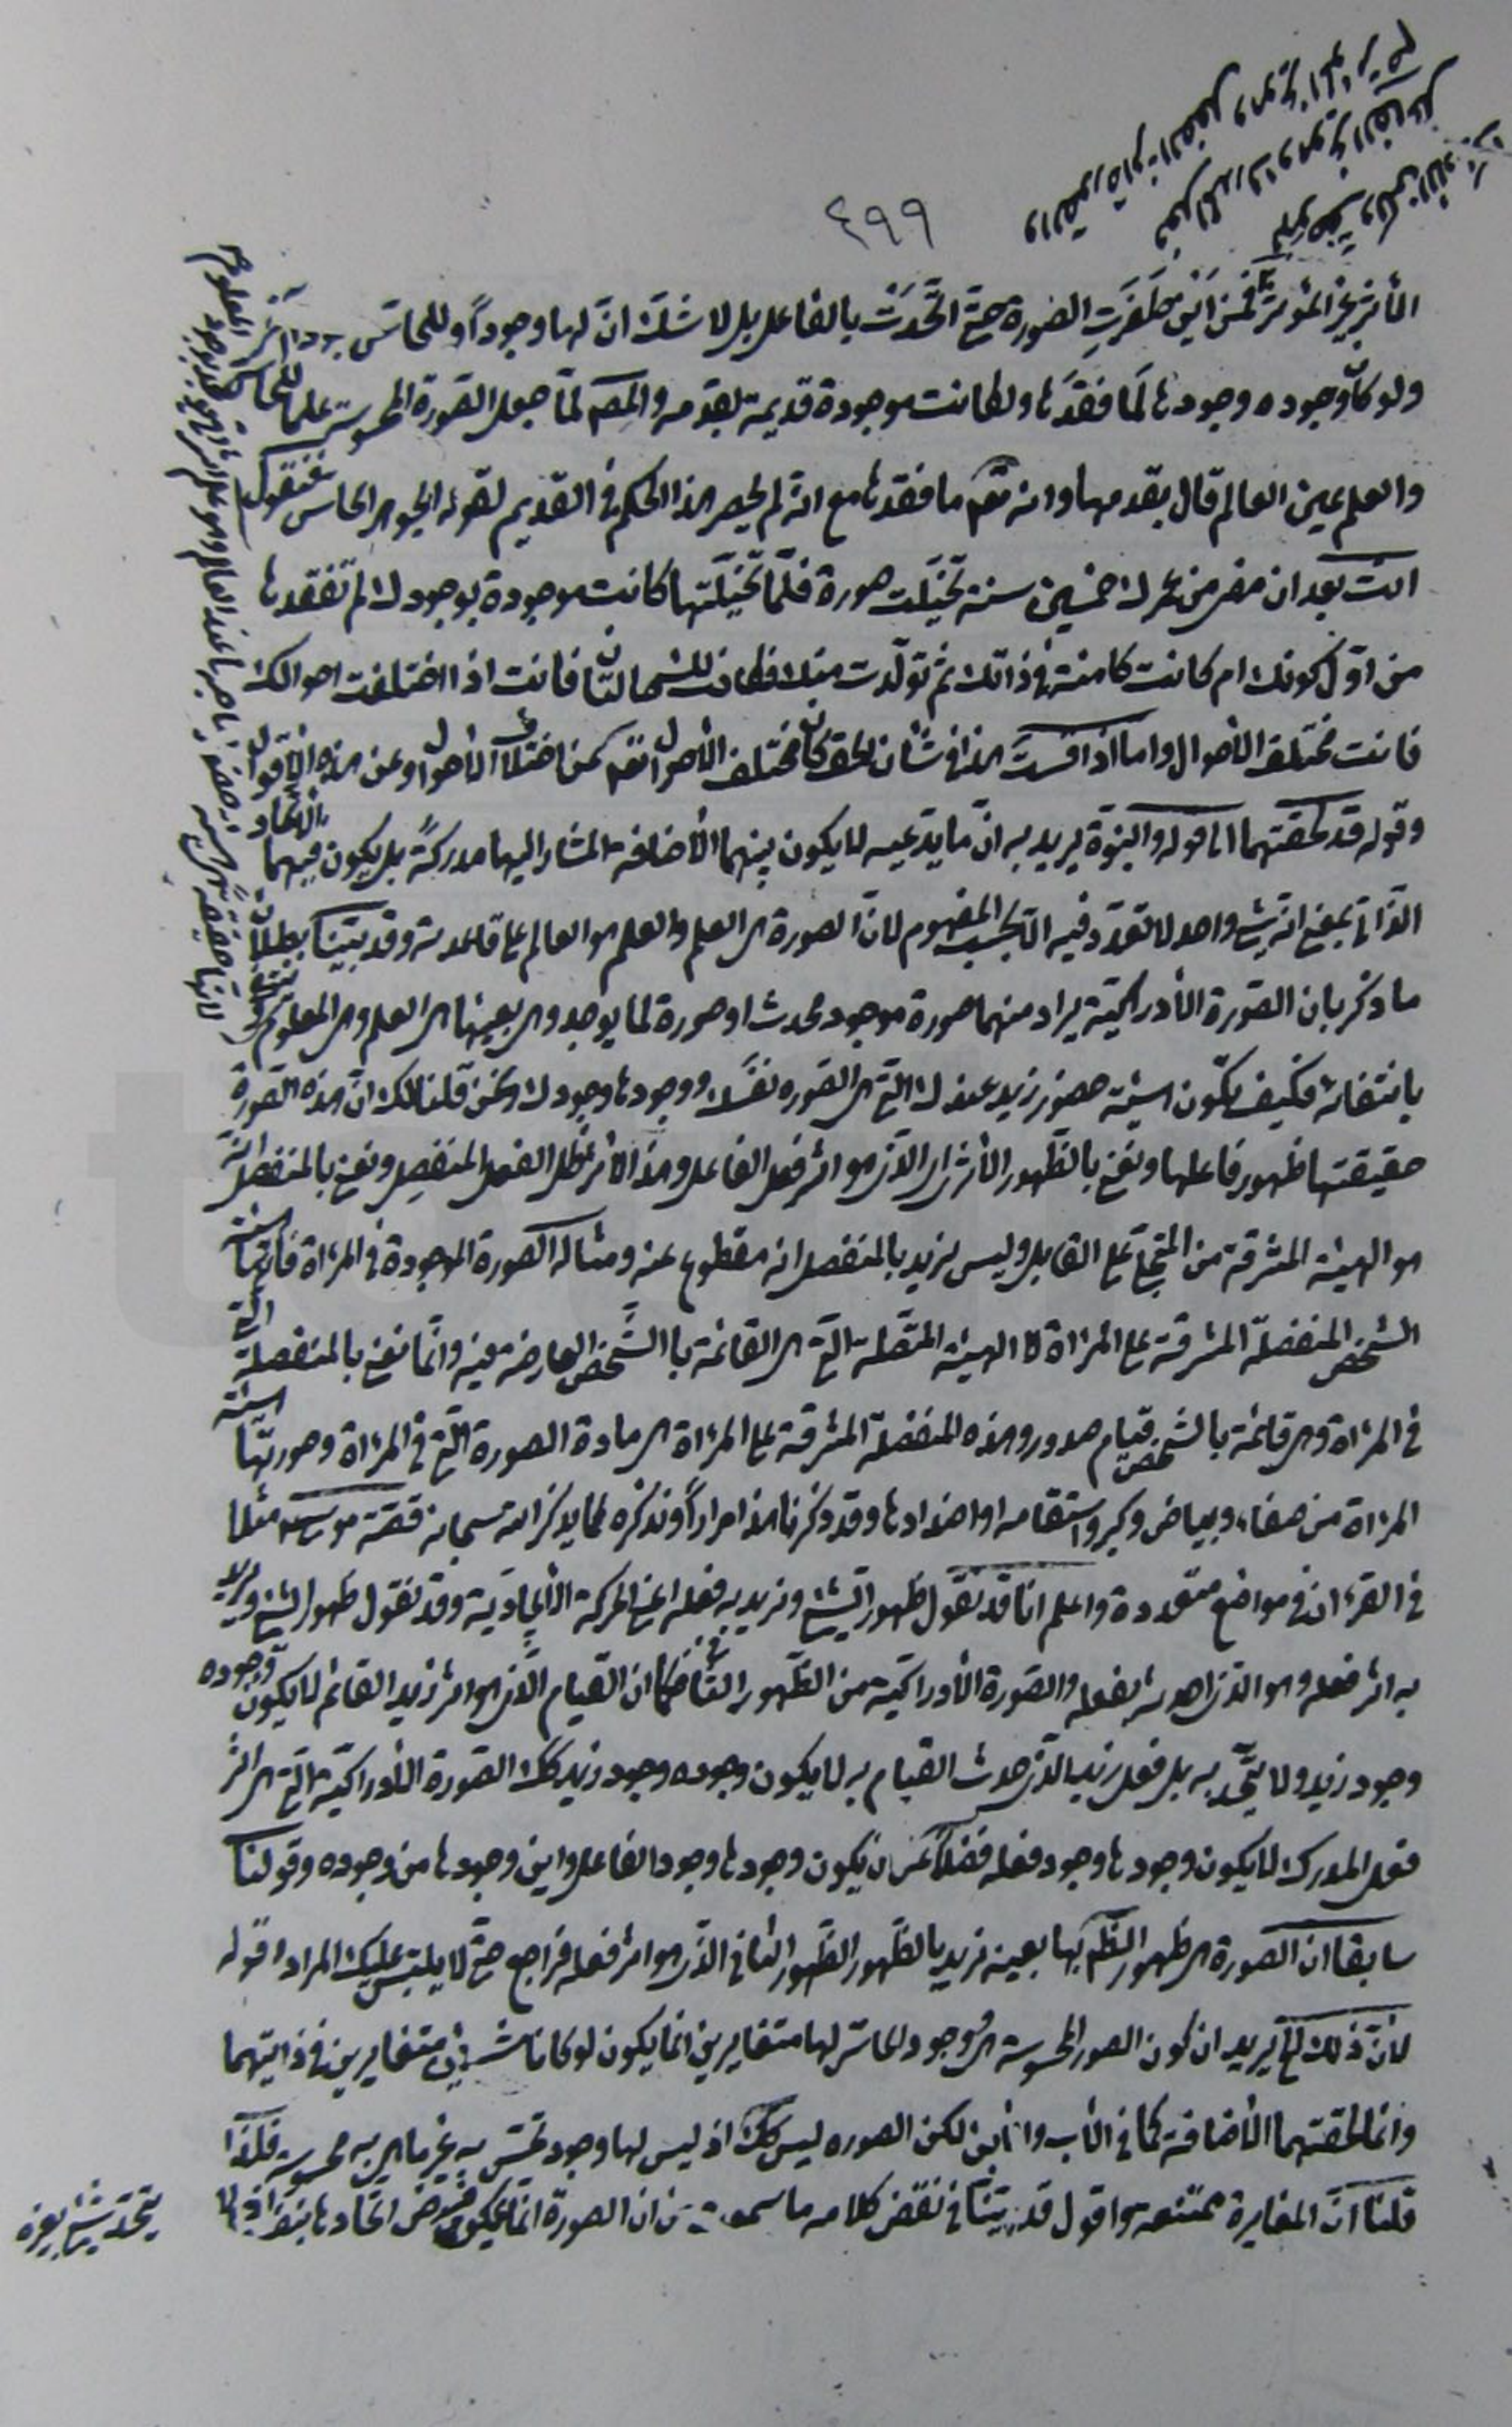 ٤٩٩
التأثير غير المؤثر فمن اين ظفرت الصورة حتى اتحدت بالفاعل بل لا شك ان لها وجوداً وللحاس وجود آخر
ولو كان وجوده وجودها لما فقدها ولكانت موجودة قديمة بقدمه والمصـ لما جعل الصورة المحسوسة علما للحاس
والعلم عين العالم قال بقدمها وانه تعـ ما فقدها مع انه لم يحصر هذا الحكم في القديم لقوله الجوهر الحاس فنقول
انت بعد ان مضى من عمرك خمسين سنة تخيّلت صورة فلمّا تخيّلتها كانت موجودة بوجودك لم تفقدها
من اوّل كونك ام كانت كامنة في ذاتك ثم تولّدت منك فان كانت اذا اختلفت احوالك
فانت مختلف الاحوال واما اذا فرضت هذا في شأن الحق كان مختلف الاحوال تعـ عن اختلاف الاحوال وعن هذه الاقوال
وقوله قد لحقتهما الى قوله والبنوة يريد به انّ ما يدّعيه لا يكون بينهما الاضافة المشار اليها مدركةً بل يكون فيهما الاتحاد
الذاتي بمعنى انه شيء واحد لا تعدّد فيه الا بحسب المفهوم لان الصورة هي العلم والعلم هو العالم على قاعدته وقد بيّنا بطلان
ما ذكر بان الصورة الادراكية يراد منها صورة موجود محدث او صورة لما يوجد وهي بعينها هي العلم وهي المعلوم تنتفي
بانتفائه فكيف تكون هيئة حضور زيد عندك التي هي الصورة نفسك ووجودها وجودك ونحن قلنا لك انّ هذه الصورة
حقيقتها ظهور فاعلها ونعني بالظهور الاثر اي الذي هو اثر فعل الفاعل وهذا الاثر ظل الفعل المنفصل ونعني بالمنفصل انه
هو الهيئة المشرقة من المتجلّي على القابل وليس نريد بالمنفصل انه مقطوع عنه ومثاله الصورة الموجودة في المرءاة فانها هيئة
الشخص المنفصلة المشرقة على المرءاة لا الهيئة المتصلة التي هي القائمة بالشخص العارضة فيه وانّما نعني بالمنفصلة التي
في المرءاة وهي قائمة بالشخص قيام صدور وهذه المنفصلة المشرقة على المرءاة هي مادة الصورة التي في المرءاة وصورتها هيئة
المرءاة من صفاء وبياض وكبر واستقامه او اضدادها وقد ذكرنا هذا مراراً ونذكره كما يذكر الله سبحانه قصة موسى مثلا
في القرءان في مواضع متعددة واعلم انا قد نقول ظهور الشيء ونريد به فعله اعني الحركة الايجادية وقد نقول ظهور الشيء ونريد
به اثر فعله وهو الذي احدثه بفعله والصورة الادراكية من الظهور الثاني فكما ان القيام الذي هو اثر زيد القائم لا يكون وجوده
وجود زيد ولا يتّحد به بل فعل زيد الذي حدث القيام به لا يكون وجوده وجود زيد كك الصورة الادراكية التي هي اثر
فعل المدرك لا يكون وجودها وجود فعله فضلاً عن ان يكون وجودها وجود الفاعل واين وجودها من وجوده وقولنا
سابقا ان الصورة هي ظهور الظاهر بها بعينه نريد بالظهور الظهور الثاني الذي هو اثر فعله فراجع حتى لا يلتبس عليك المراد وقوله
لانّ ذلك الخ يريد ان كون الصور المحسوسة هي ووجود الحاس لها متغايرين انما يكون لو كانا شيئين متغايرين في ذاتيهما
وانما لحقتهما الاضافة كما في الاب والابن لكن الصوره ليس كك اذ ليس لها وجود تحسّ به غير ما هي به محسوسة فلذا
قلنا انّ المغايرة ممتنعه واقول قد بيّنا في نقض كلامه ما سمعت من ان الصورة انما يمكن فرض اتحادها بنفسها اذ لا
يتحد شيء بغيره